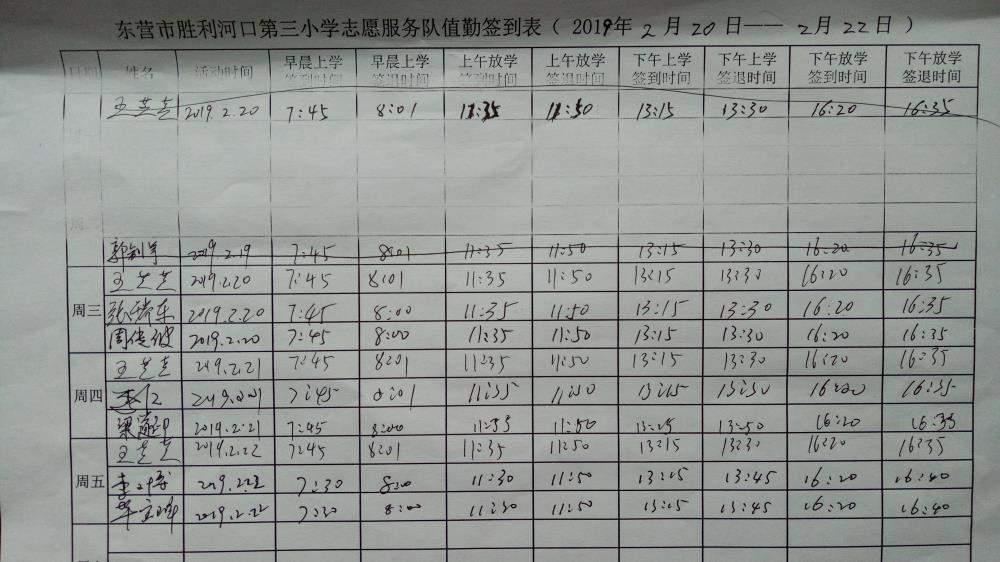 东营市胜利河口第三小学志愿服务队值勤签到表（2019年2月20日——2月22日）
日期 姓名 活动时间 早晨上学签到时间 早晨上学签退时间 上午放学签到时间 上午放学签退时间 下午上学签到时间 下午上学签退时间 下午放学签到时间 下午放学签退时间
王芝芝 2019.2.20 7:45 8:01 11:35 11:50 13:15 13:30 16:20 16:35
2019.2.19 7:45 8:01 11:35 11:50 13:15 13:30 16:20 16:35
周三 王芝芝 2019.2.20 7:45 8:01 11:35 11:50 13:15 13:30 16:20 16:35
2019.2.20 7:45 8:00 11:35 11:50 13:15 13:30 16:20 16:35
2019.2.20 7:45 8:00 11:35 11:50 13:15 13:30 16:20 16:35
周四 王芝芝 2019.2.21 7:45 8:01 11:35 11:50 13:15 13:30 16:20 16:35
7:45 8:01 11:35 11:50 13:15 13:30 16:35
2019.2.21 7:45 8:00 11:55 11:50 13:15 13:50 16:20 16:35
周五 王芝芝 2019.2.22 7:45 8:01 11:35 11:50 13:15 13:30 16:20 16:35
2019.2.22 7:30 8:00 11:30 11:50 13:15 13:45 16:20 16:40
2019.2.22 7:30 8:00 11:30 11:50 13:15 13:45 16:20 16:40